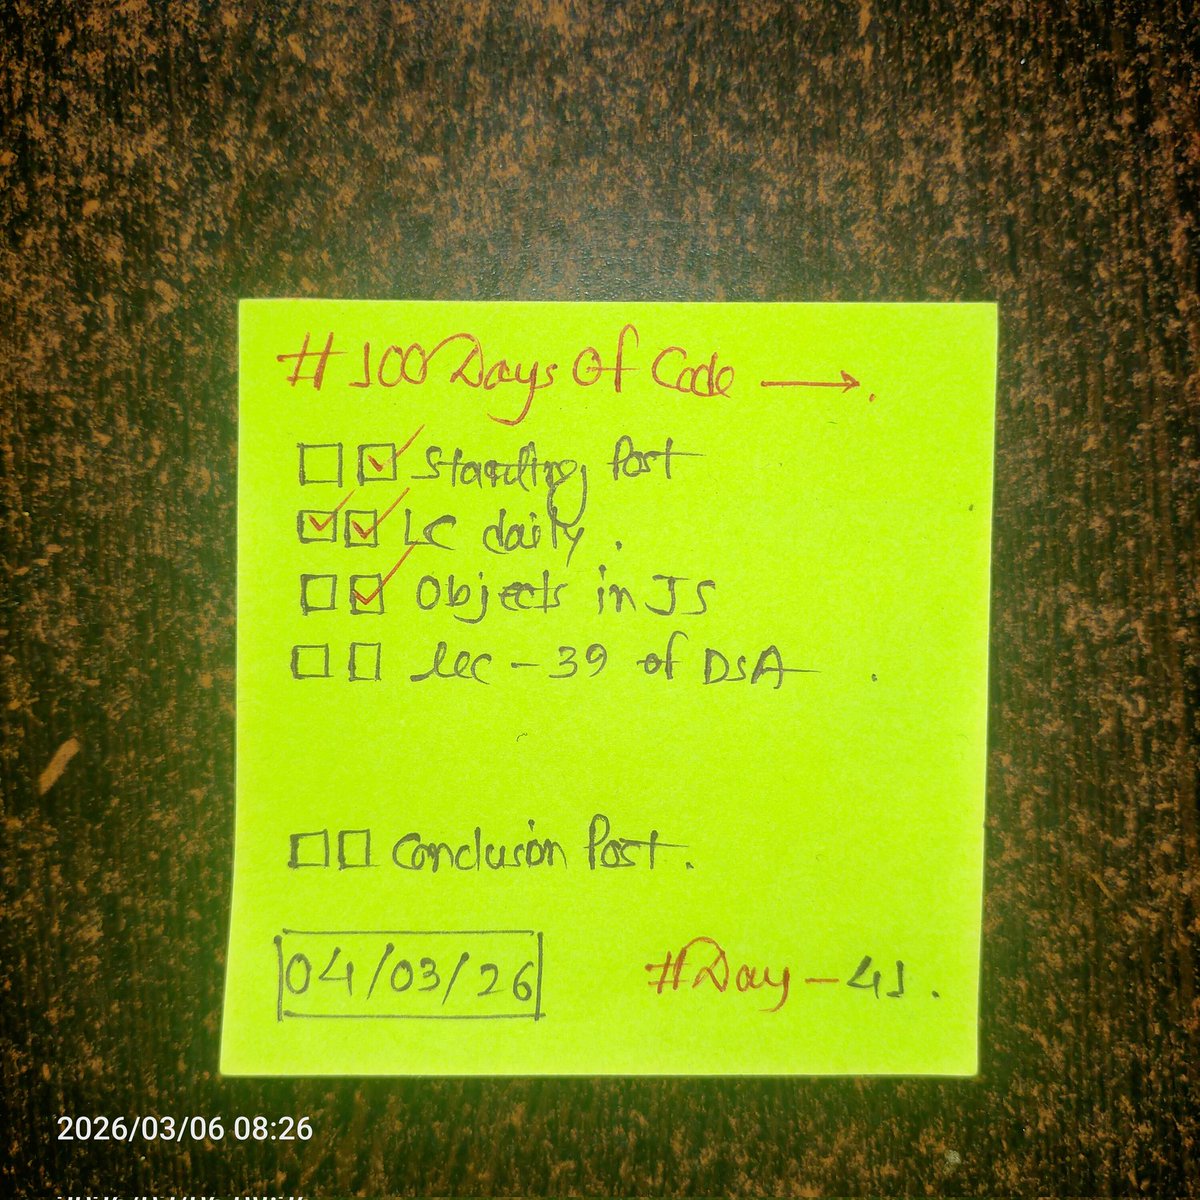 #100 Days Of Code →.
☐ ☑ Starting Post
☑ ☑ LC daily.
☐ ☑ Objects in JS
☐ ☐ Lec - 39 of DSA.
☐ ☐ Conclusion Post.
04/03/26
#Day - 41.
2026/03/06 08:26